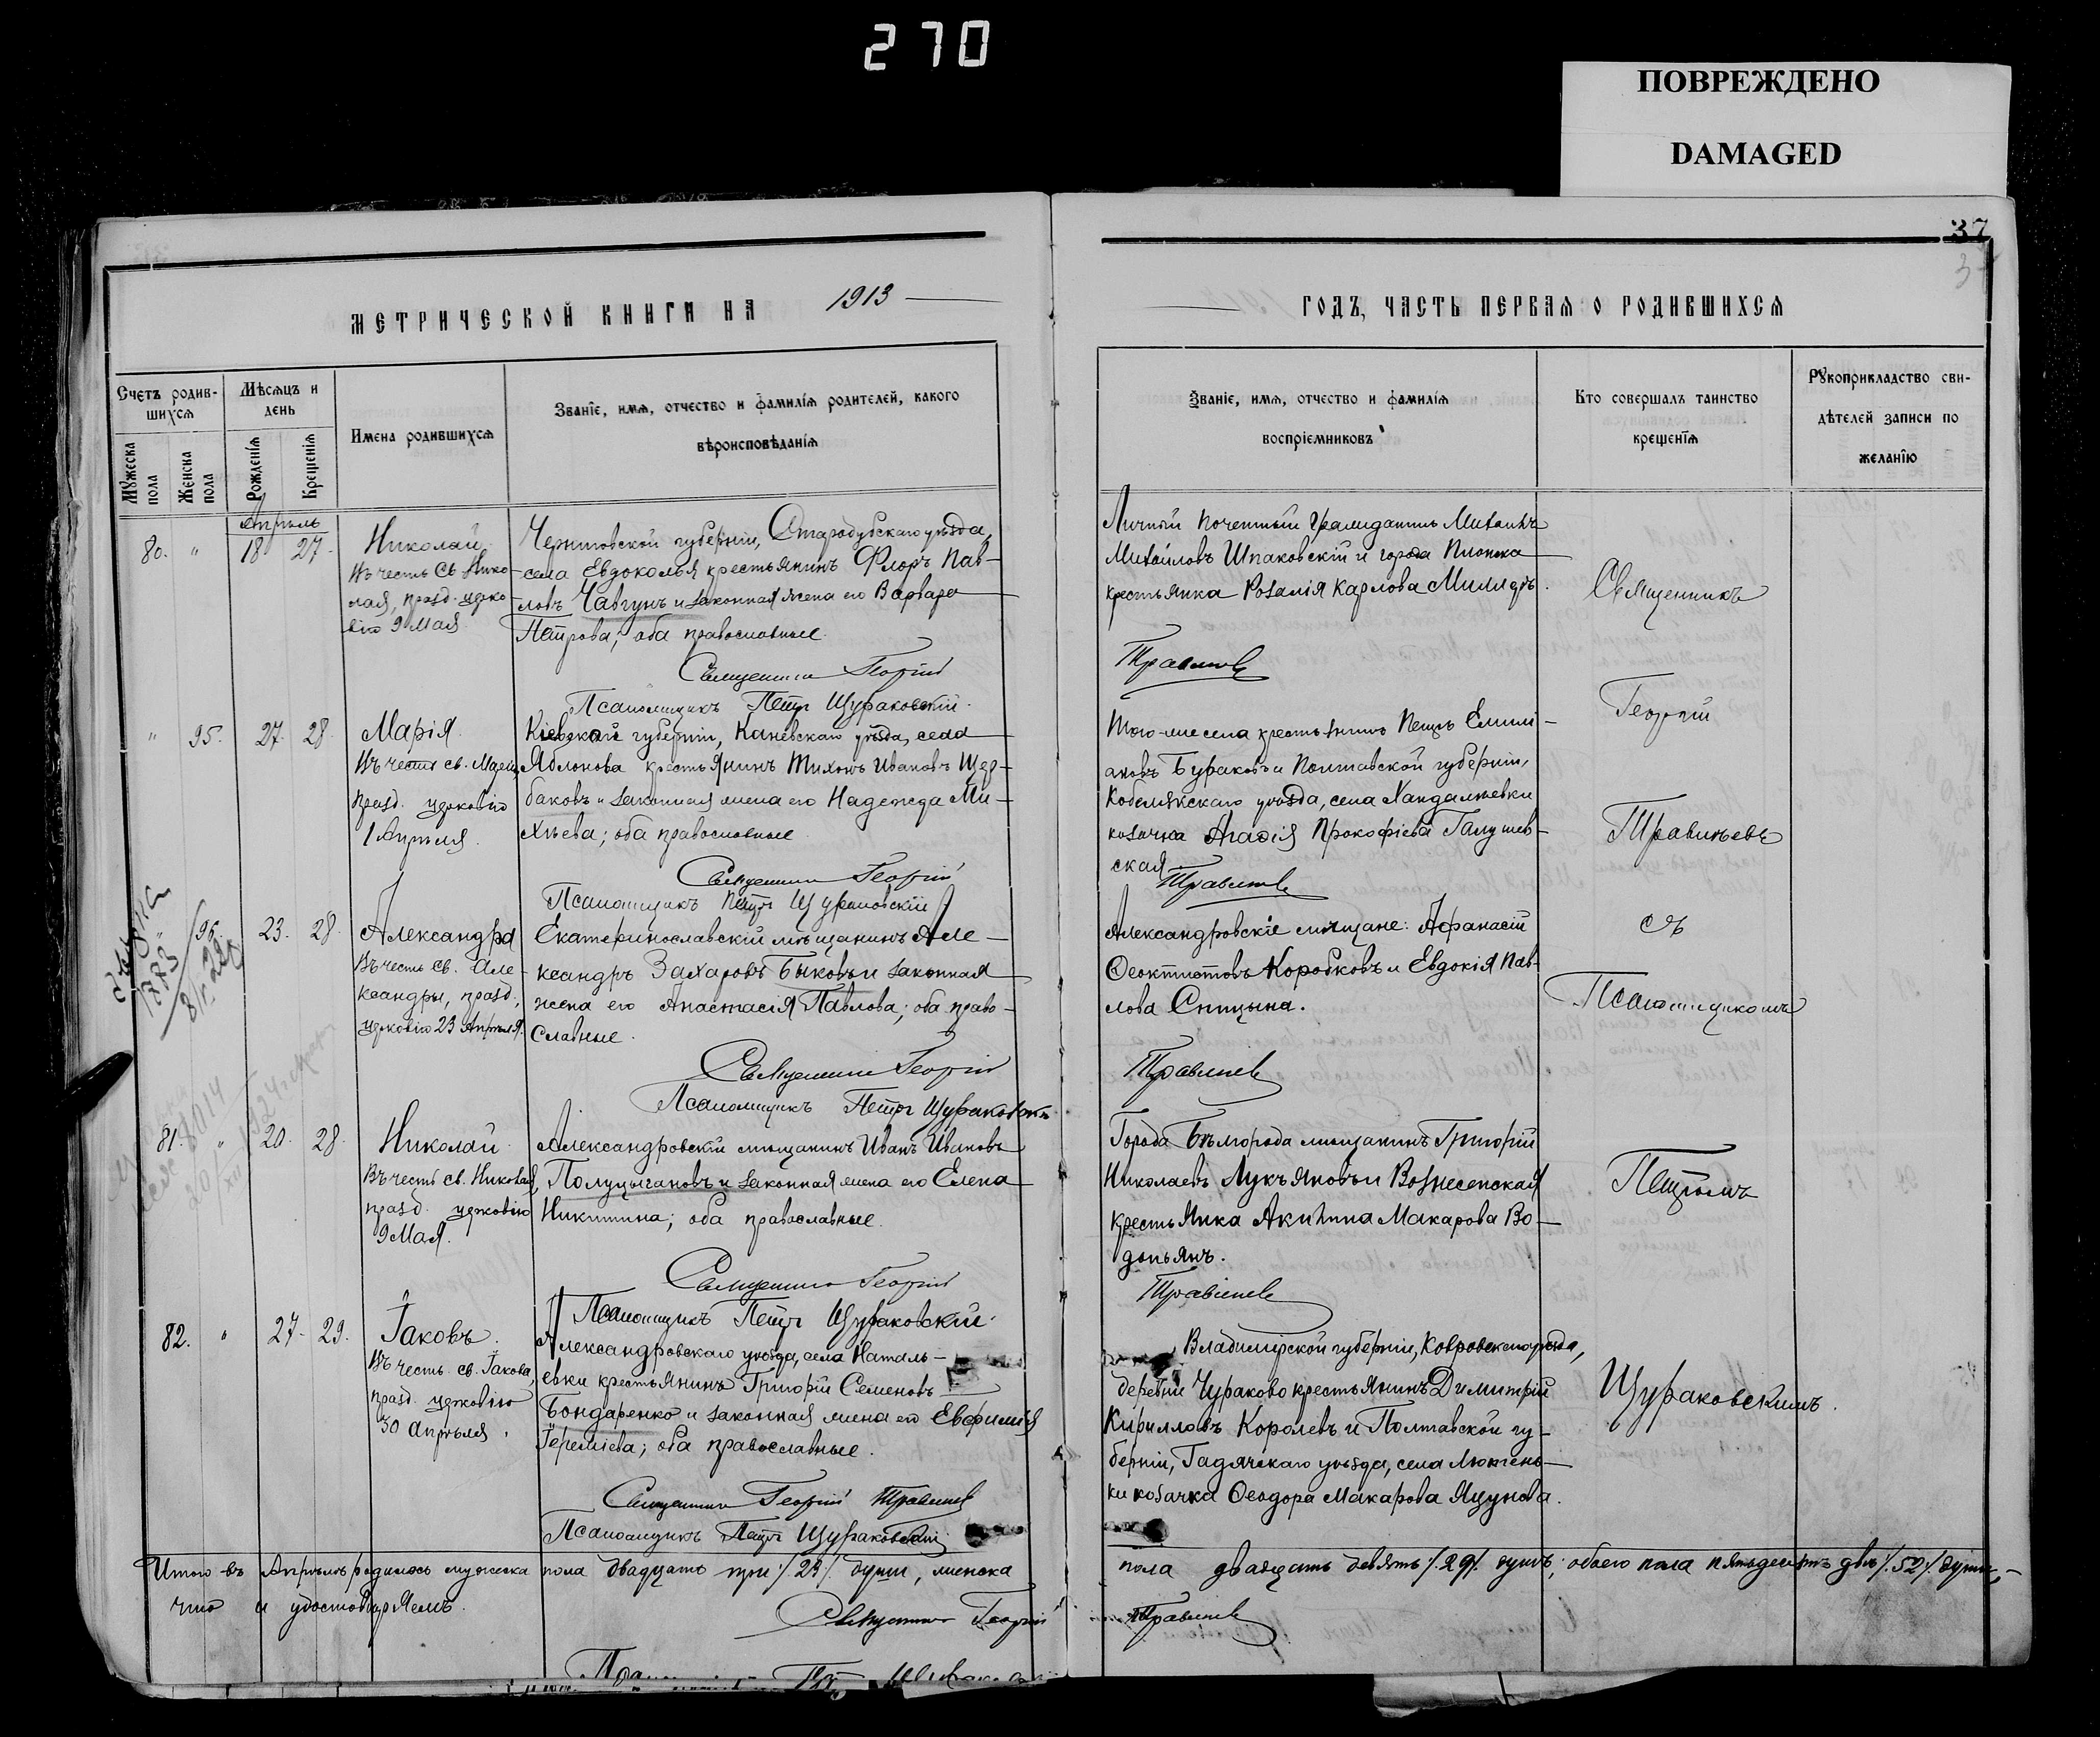 270
ПОВРЕЖДЕНО
DAMAGED
37
МЕТРИЧЕСКОЙ КНИГИ НА 1913
Счетъ родив-
шихся
Мѣсяцъ и
день
Мужеска
пола
Женска
пола
Рожденія
Крещенія
Имена родившихся
Званіе, имя, отчество и фамилія родителей, какого
вѣроисповѣданія
Апрѣль
80. " 18 27
Николай
Въ честь Св. Нико-
лая, празд. церко-
вію 9 Мая
Черниговской губерніи, Стародубскаго уѣзда,
села Евдоколья крестьянинъ Флоръ Пав-
ловъ Чавгунъ и законная жена его Варвара
Петрова; оба православные.
Священникъ Георгій
Псаломщикъ Петръ Щураковскій.
" 95. 27. 28.
Марія
Въ честь св. Маріи,
празд. церковію
1 Апрѣля.
Кіевской губерніи, Каневскаго уѣзда, села
Яблонова крестьянинъ Тихонъ Ивановъ Щер-
баковъ и законная жена его Надежда Ми-
хѣева; оба православные.
Священникъ Георгій
Псаломщикъ Петръ Щураковскій
" 96. 23. 28.
Александра
Въ честь св. Але-
ксандры, празд.
церковію 23 Апрѣля.
Екатеринославскій мѣщанинъ Але-
ксандръ Захаровъ Быковъ и законная
жена его Анастасія Павлова; оба право-
славные.
Священникъ Георгій
Псаломщикъ Петръ Щураковскій
81. " 20. 28.
Николай
Въ честь св. Николая,
празд. церковію
9 Мая.
Александровскій мѣщанинъ Иванъ Ивановъ
Полуцыгановъ и законная жена его Елена
Никитина; оба православные.
Священникъ Георгій
Псаломщикъ Петръ Щураковскій.
82. " 27. 29.
Іаковъ
Въ честь св. Іакова,
празд. церковію
30 апрѣля.
Александровскаго уѣзда, села Наталь-
евки крестьянинъ Григорій Семеновъ
Бондаренко и законная жена его Евфимія
Іереміева; оба православные.
Священникъ Георгій Травинѣвъ
Псаломщикъ Петръ Щураковскій
Итого въ Апрѣлѣ родилось мужеска пола двадцать три /23/ души, женска
что и удостовѣряемъ.
Священникъ Георгій
ГОДЪ, ЧАСТЬ ПЕРВАЯ О РОДИВШИХСЯ
Званіе, имя, отчество и фамилія
воспріемниковъ
Кто совершалъ таинство
крещенія
Рукоприкладство сви-
дѣтелей записи по
желанію
Личный почетный гражданинъ Михаилъ
Михайловъ Шпаковскій и города
крестьянка Розалія Карлова Миллеръ.
Травинѣвъ
Того-же села крестьянинъ Петръ Емили-
ановъ Бураковъ и Полтавской губерніи,
Кобелякскаго уѣзда, села Хандалѣевки
козачка Агафія Прокофіева Галушев-
ская
Травинѣвъ
Александровскіе мѣщане: Афанасій
Ѳеоктистовъ Коробковъ и Евдокія Пав-
лова Спицына.
Травинѣвъ
Города Бѣлгорода мѣщанинъ Григорій
Николаевъ Лукьяновъ и Вознесенская
крестьянка Акилина Макарова Во-
допьянъ.
Травинѣвъ
Владимірской губерніи, Ковровскаго уѣзда,
деревни Чураково крестьянинъ Димитрій
Кирилловъ Королевъ и Полтавской гу-
берніи, Гадячскаго уѣзда, села Лютень-
ки козачка Ѳеодора Макарова Яцунова.
Священникъ
Георгій
Травинѣвъ
съ
Псаломщикомъ
Петромъ
Щураковскимъ.
пола двадцать девять /29/ душъ; обоего пола пятьдесятъ двѣ /52/ души,
Травинѣвъ